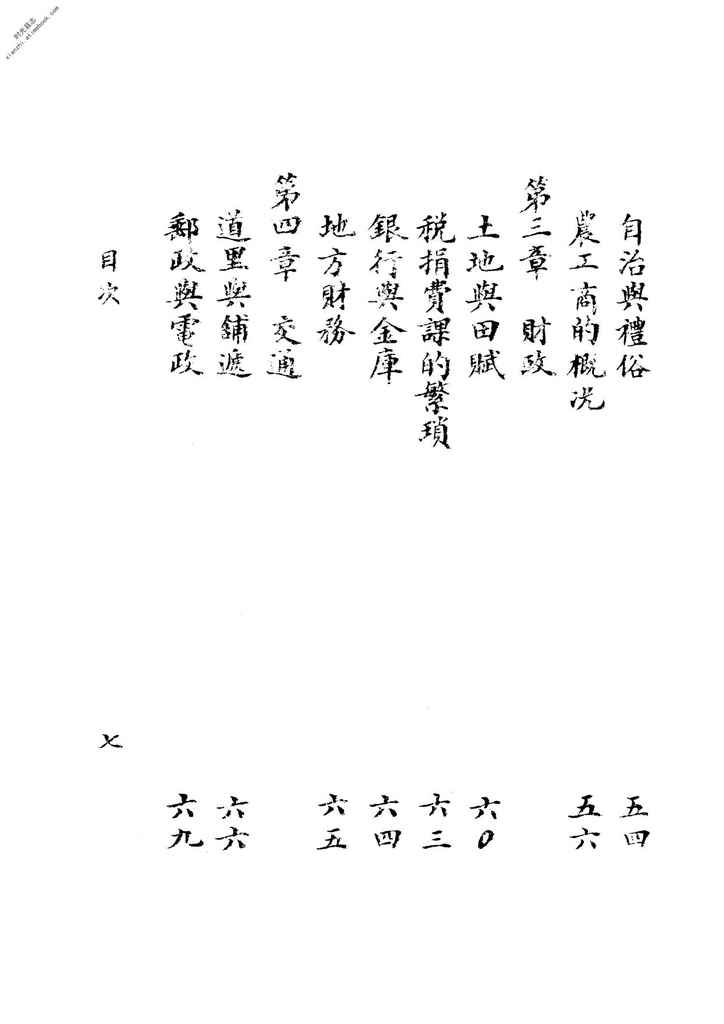 时光县志
xianzhi.atimebook.com
自治與禮俗 五四
農工商的概况 五六
第三章 財政
土地與田賦 六0
稅捐費課的繁瑣 六三
銀行與金庫 六四
地方財務 六五
第四章 交通
道里與舖遞 六六
郵政與電政 六九
目次 七